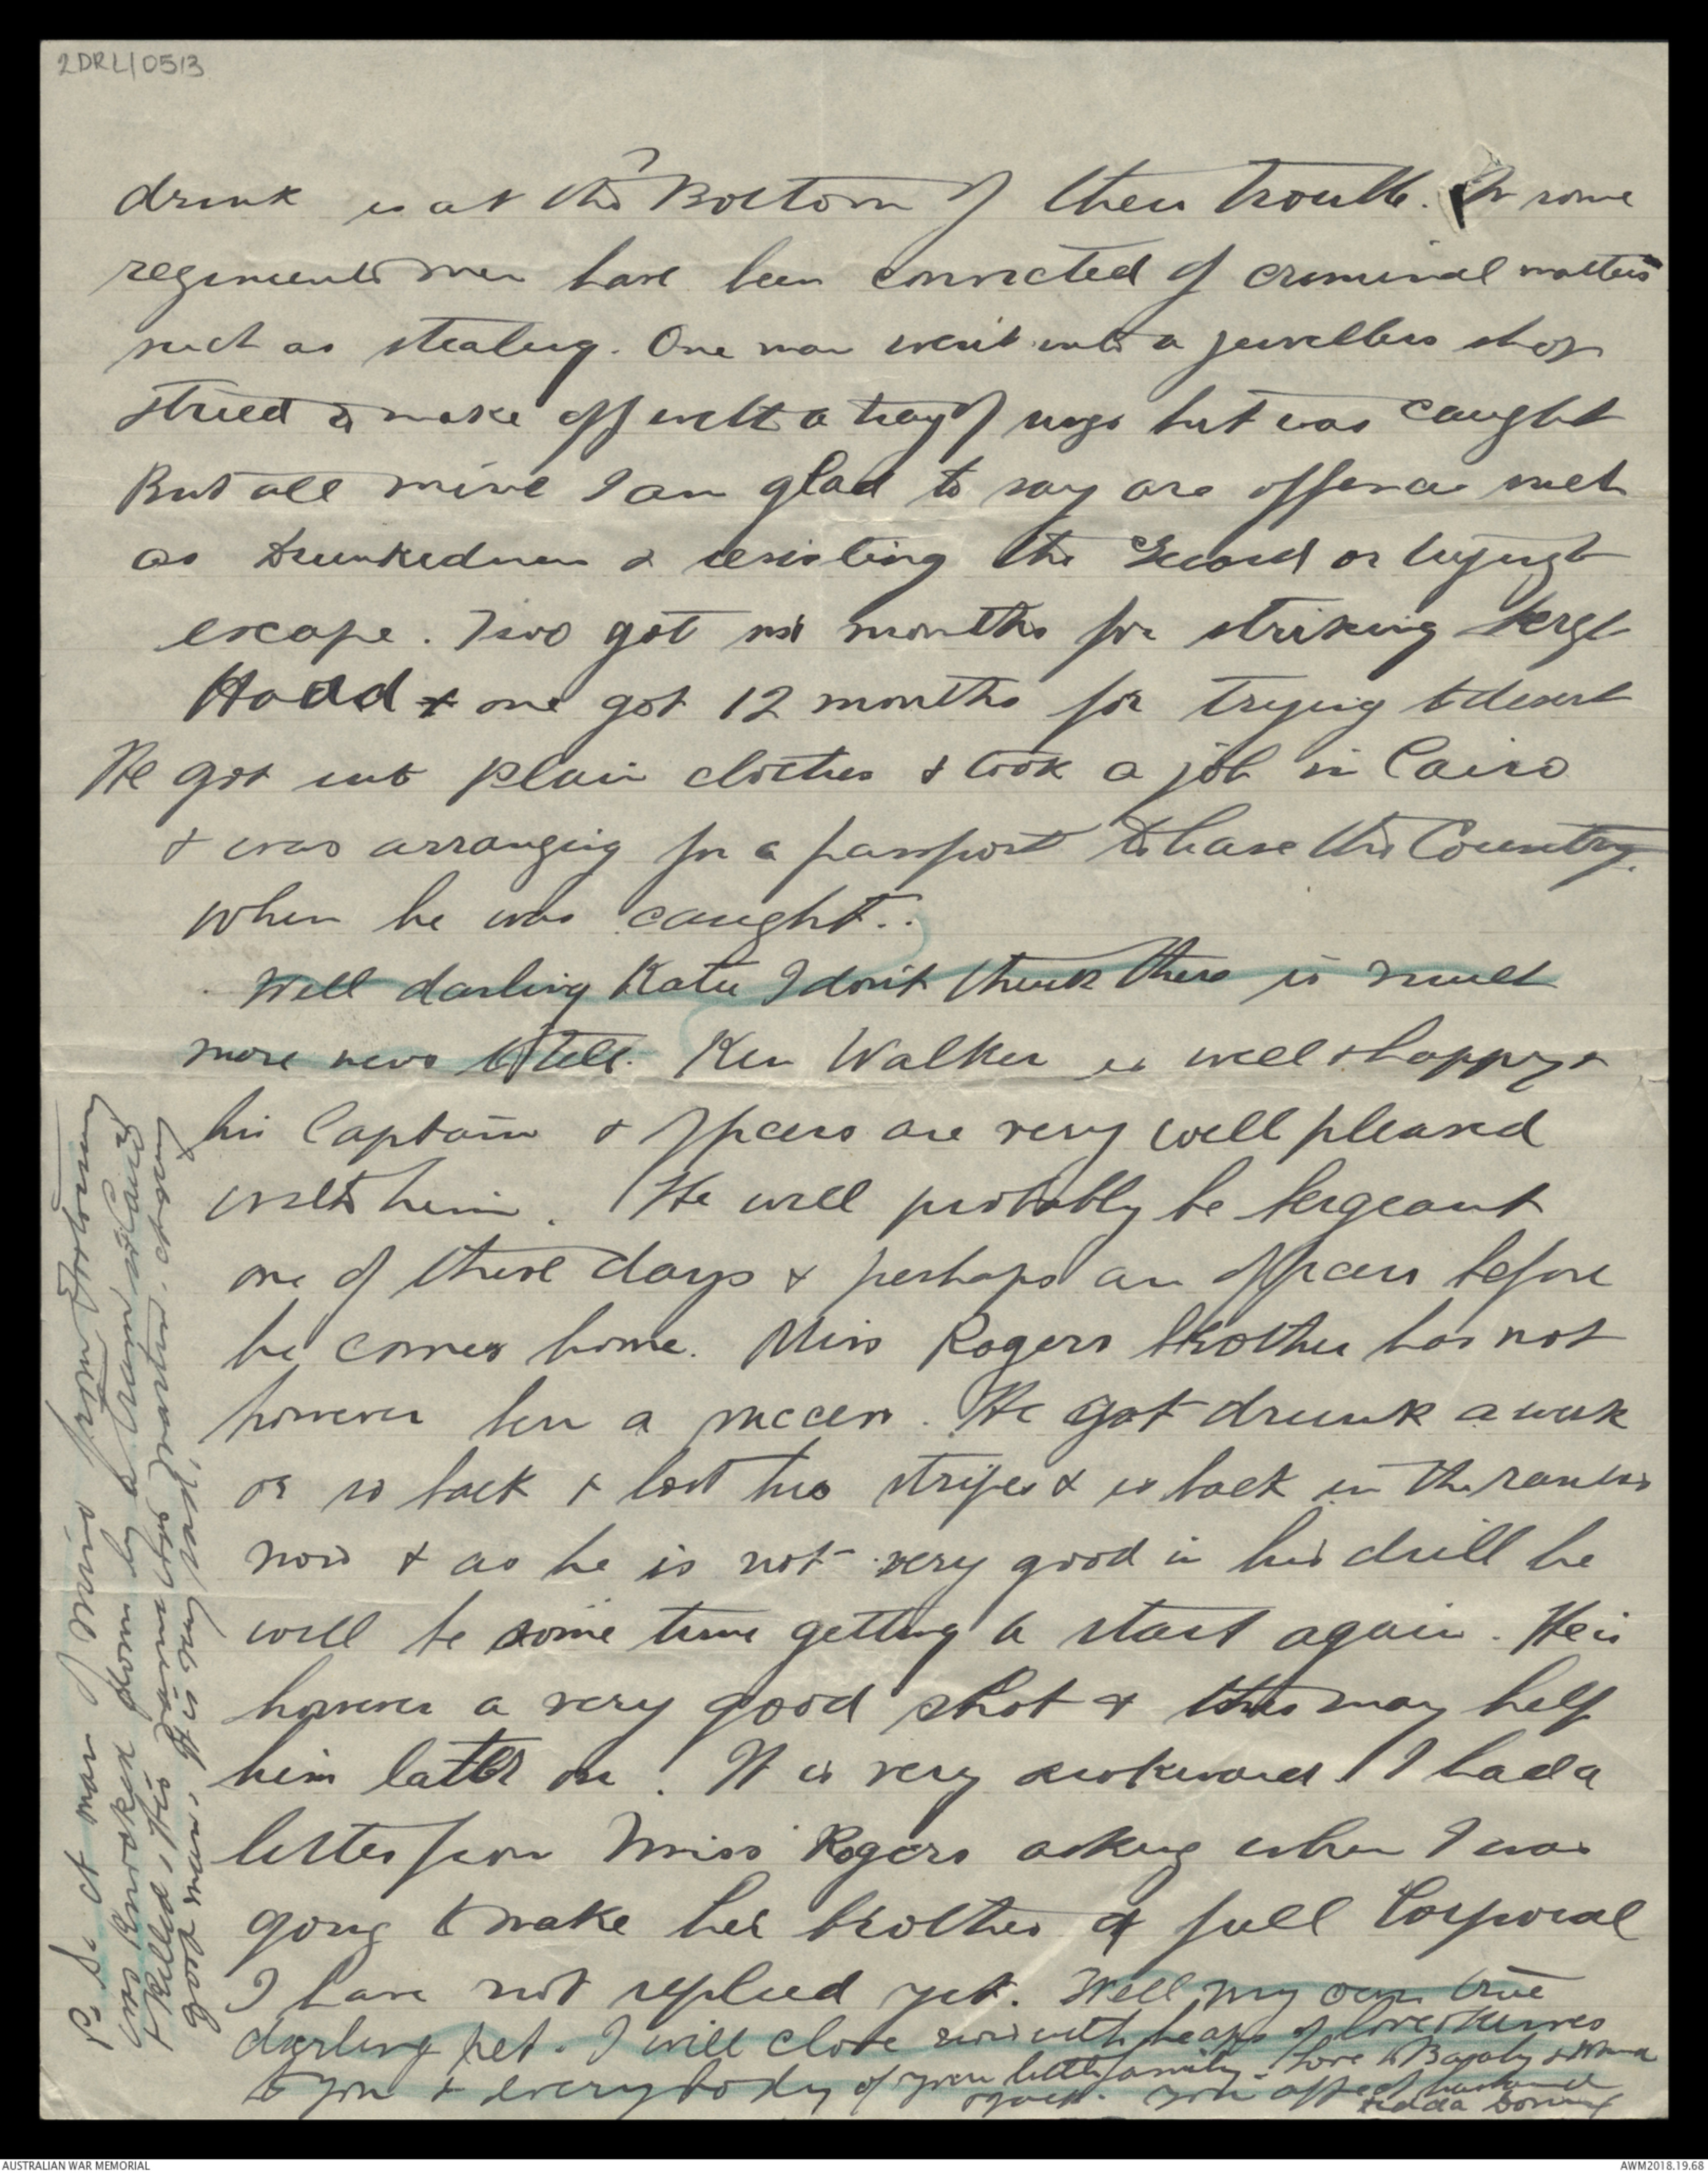 2DRL/0513
drink is at the Bottom of their trouble. In some
regiments men have been convicted of criminal matters
such as stealing. One man went into a jewellers shop
& tried to make off with a tray of rings but was caught
But all mine I am glad to say are offences such
as Drunkedness & resisting the Guard or trying to
escape. Two got six months for striking Sergt
Hoad & one got 12 months for trying to desert
He got into plain clothes & took a job in Cairo
& was arranging for a passport to leave the Country.
when he was caught..
Well darling Katie I don't think there is much
more news to tell. Ken Walker is well & happy &
his Captain & Officers are very well pleased
with him. He will probably be Sergeant
one of these days & perhaps an officer before
he comes home. Miss Rogers brother has not
however been a success. He got drunk a week
or so back & lost his stripes & is back in the ranks
now & as he is not very good in his drill he
will be some time getting a start again. He is
however a very good shot & this may help
him latter on. It is very awkward. I had a
letter from Miss Rogers asking when I was
going to make her brother a full Corporal
I have not replied yet. Well my own true
darling pet. I will close now with heaps of love & kisses
to you & everybody of your little family. Love to Bagaly &
your affect husband
P. S. A man of mine from
was knocked down by a tram in Cairo
& killed, His name was Martin.
good man. It is very sad.
AUSTRALIAN WAR MEMORIAL
AWM2018.19.68